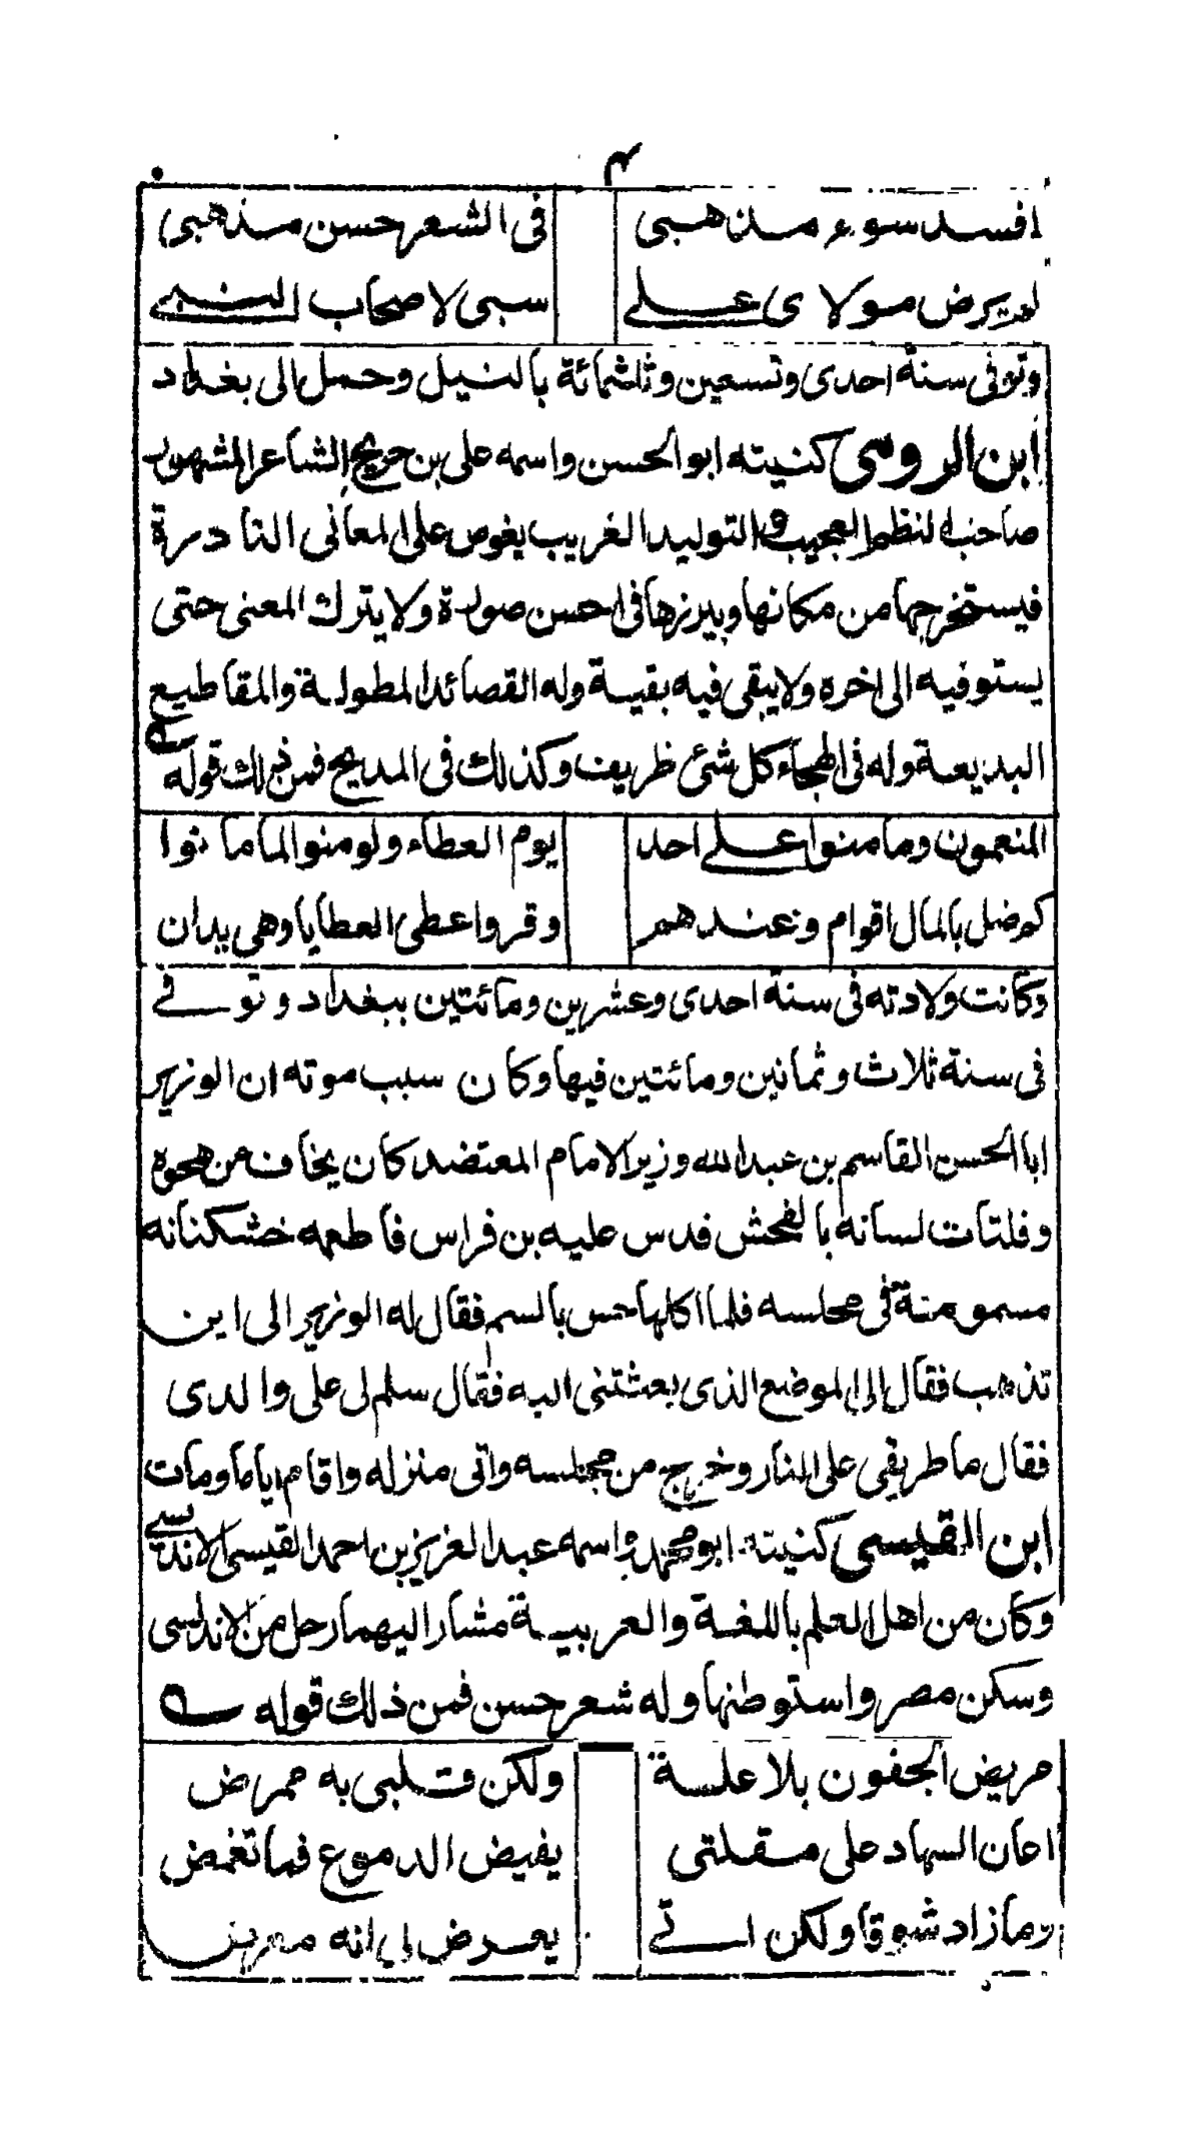 ۴
افسد سوء مذهبي في الشعر حسن مذهبي
لم يرض مولاي علي سبي لاصحاب النبي
وتوفي سنة احدى وتسعين وثلثمائة بالنيل وحمل الى بغداد
ابن الرومي كنيته ابو الحسن واسمه علي بن جريج الشاعر المشهور
صاحب النظم العجيب والتوليد الغريب يغوص على المعاني النادرة
فيستخرجها من مكانها ويبرزها في احسن صورة ولا يترك المعنى حتى
يستوفيه الى اخره ولا يبقى فيه بقية وله القصائد المطولة والمقاطيع
البديعة وله في الهجاء كل شئ ظريف وكذلك في المديح فمن ذلك قوله
المنعمون وما منوا علي احد يوم العطاء ولو منوا لما مانوا
كم ضن بالمال اقوام وعندهم وفر واعطى العطايا وهي يدان
وكانت ولادته في سنة احدى وعشرين ومائتين ببغداد وتوفي
في سنة ثلاث وثمانين ومائتين فيها وكان سبب موته ان الوزير
ابا الحسن القاسم بن عبد الله وزير الامام المعتضد كان يخاف من هجوه
وفلتات لسانه بالفحش فدس عليه بن فراس فاطعمه خشكنانه
مسمومة في مجلسه فلما اكلها حس بالسم فقال له الوزير الى اين
تذهب فقال الى الموضع الذي بعثتني اليه فقال سلم لي على والدي
فقال ما طريقي على النار وخرج من مجلسه واتى منزله واقام اياما ومات
ابن القيسي كنيته ابو محمد واسمه عبد العزيز بن احمد القيسي الاندلسي
وكان من اهل العلم باللغة والعربية مشار اليهما رحل من الاندلسى
وسكن مصر واستوطنها وله شعر حسن فمن ذلك قوله
مريض الجفون بلا علة ولكن قلبي به ممرض
اعان السهاد على مقلتي يفيض الدموع فما تغمض
وما زاد شوقا ولكن اتي يعرض لي انه معرض